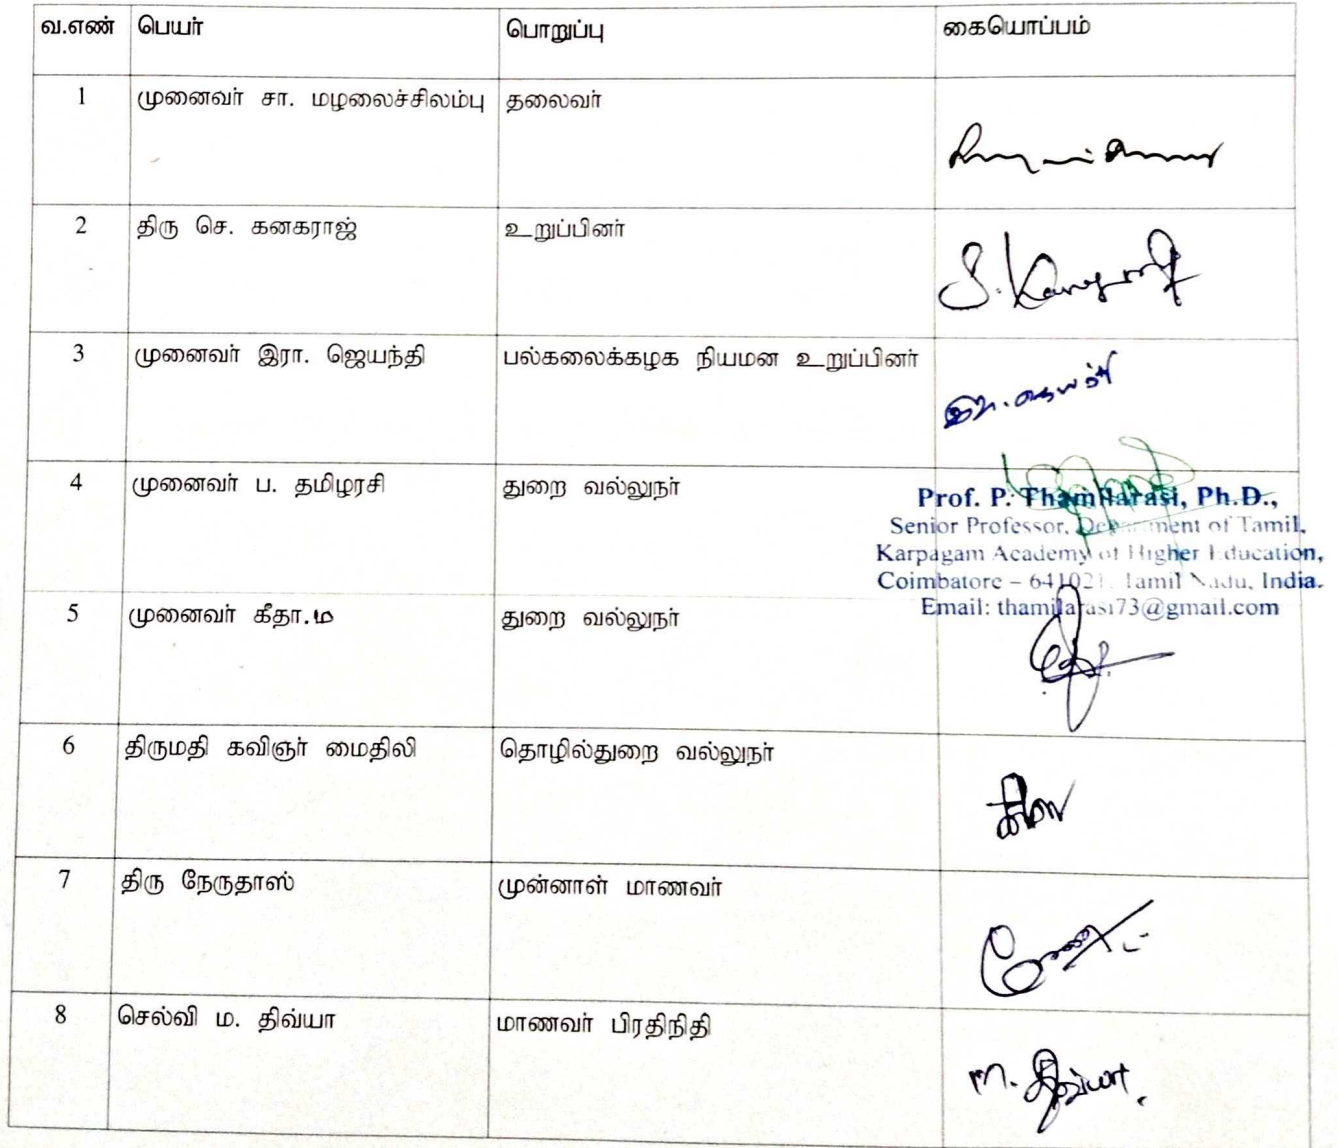 வ.எண் பெயர் பொறுப்பு கையொப்பம்
1 முனைவர் சா. மழலைச்சிலம்பு தலைவர்
2 திரு செ. கனகராஜ் உறுப்பினர்
S. Kanagaraj
3 முனைவர் இரா. ஜெயந்தி பல்கலைக்கழக நியமன உறுப்பினர்
4 முனைவர் ப. தமிழரசி துறை வல்லுநர்
Prof. P. Thamilarasi, Ph.D.,
Senior Professor, Department of Tamil,
Karpagam Academy of Higher Education,
Coimbatore – 641021. Tamil Nadu, India.
Email: thamilarasi73@gmail.com
5 முனைவர் கீதா.ம துறை வல்லுநர்
6 திருமதி கவிஞர் மைதிலி தொழில்துறை வல்லுநர்
7 திரு நேருதாஸ் முன்னாள் மாணவர்
8 செல்வி ம. திவ்யா மாணவர் பிரதிநிதி
m. திவ்யா.